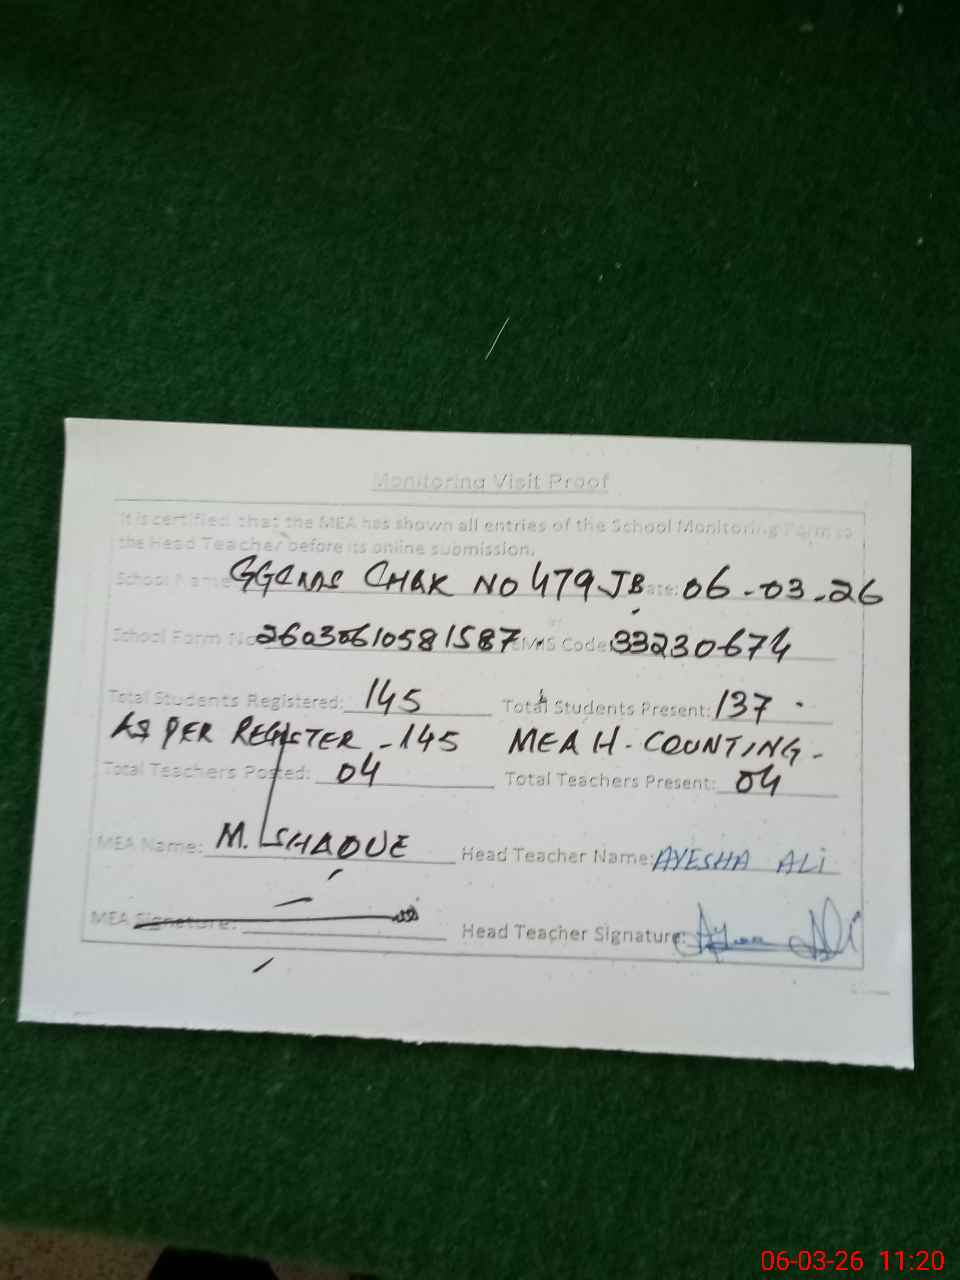 Monitoring Visit Proof
It is certified that the MEA has shown all entries of the School Monitoring Form to
the Head Teacher before its online submission.
School Name CHAK NO 479 JB Date: 06-03-26
School Form No 26030610581587 EMIS Code 33230674
Total Students Registered: 145 Total Students Present: 137
AS PER REGISTER - 145 MEA H. COUNTING -
Total Teachers Posted: 04 Total Teachers Present: 04
MEA Name: M. Head Teacher Name: AYESHA ALI
MEA Signature: Head Teacher Signature:
06-03-26 11:20